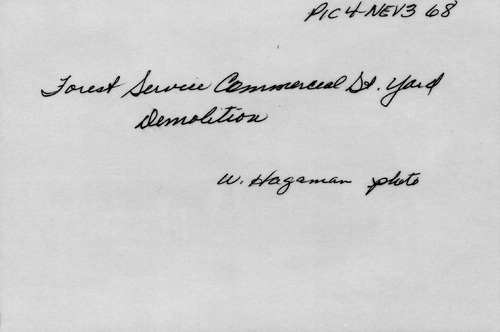 PIC 4-NEV3 68
Forest Service Commercial St. Yard
Demolition
W. Hagaman photo